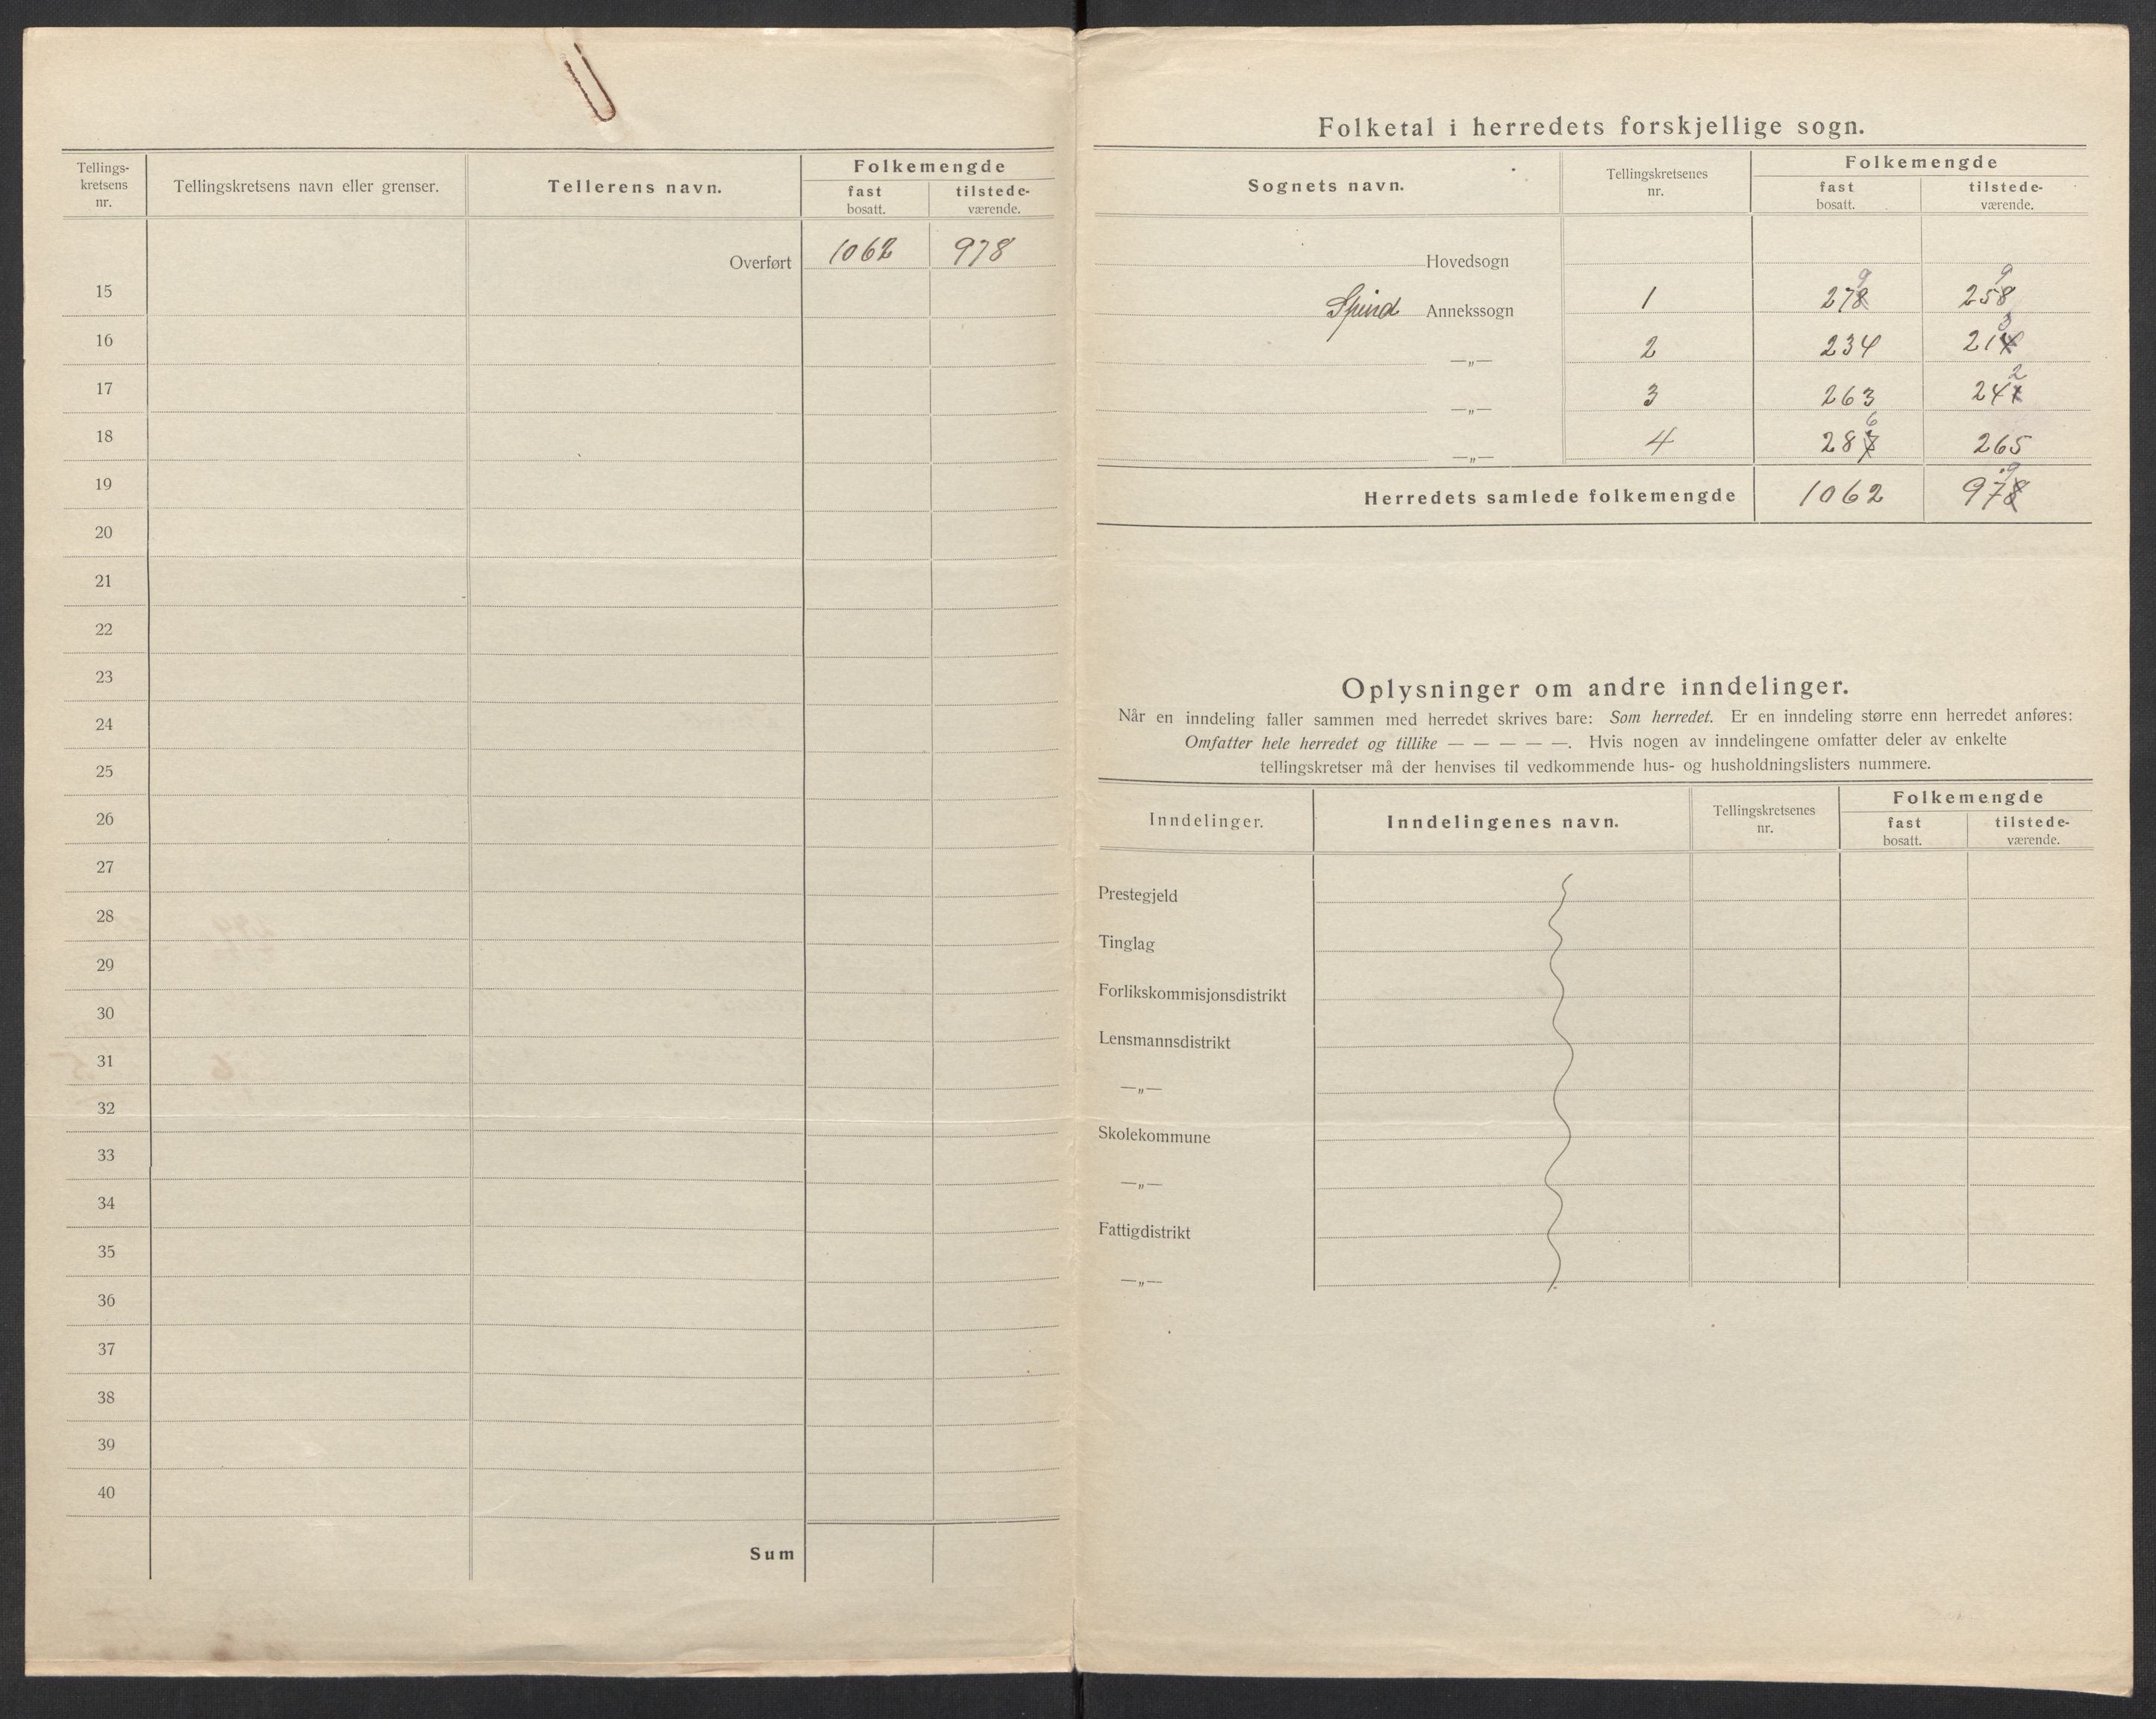 Tellings-
kretsens
nr.
Tellingskretsens navn eller grenser.
Tellerens navn.
Folkemengde
fast
bosatt.
tilstede-
værende.
Overført 1062 978
15
16
17
18
19
20
21
22
23
24
25
26
27
28
29
30
31
32
33
34
35
36
37
38
39
40
Sum
Folketal i herredets forskjellige sogn.
Sognets navn.
Tellingskretsenes
nr.
Folkemengde
fast
bosatt.
tilstede-
værende.
Hovedsogn
9 9
Spind Annekssogn 1 278 258
3
—„— 2 234 214
2
—„— 3 263 241
6
—„— 4 287 265
9
Herredets samlede folkemengde 1062 978
Oplysninger om andre inndelinger.
Når en inndeling faller sammen med herredet skrives bare: Som herredet. Er en inndeling større enn herredet anføres:
Omfatter hele herredet og tillike — — — — —. Hvis nogen av inndelingene omfatter deler av enkelte
tellingskretser må der henvises til vedkommende hus- og husholdningslisters nummere.
Inndelinger.
Inndelingenes navn.
Tellingskretsenes
nr.
Folkemengde
fast
bosatt.
tilstede-
værende.
Prestegjeld
Tinglag
Forlikskommisjonsdistrikt
Lensmannsdistrikt
—„—
Skolekommune
—„—
Fattigdistrikt
—„—